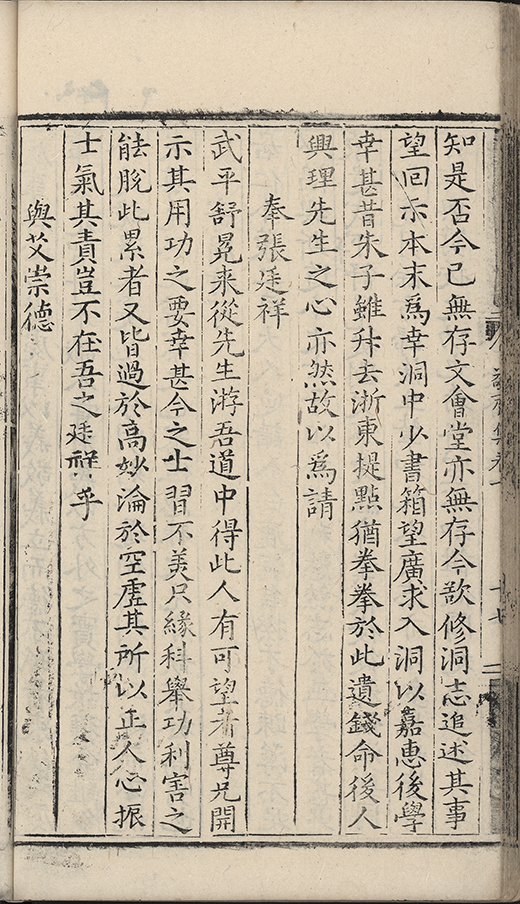 知是否今已無存文會堂亦無存今欲修洞志追述其事
望回示本末爲幸洞中少書箱望廣求入洞以嘉惠後學
幸甚昔朱子雖升去浙東提點猶拳拳於此遺錢命後人
興理先生之心亦然故以爲請
奉張廷祥
武平舒冕来從先生游吾道中得此人有可望者尊兄開
示其用功之要幸甚今之士習不美只緣科舉功利害之
能脫此累者又皆過於高妙淪於空虛其所以正人心振
士氣其責豈不在吾之廷祥乎
與艾崇德